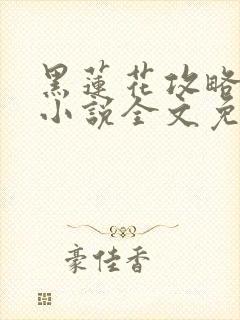 黑蓮花攻略
小說全文免
豪佳香